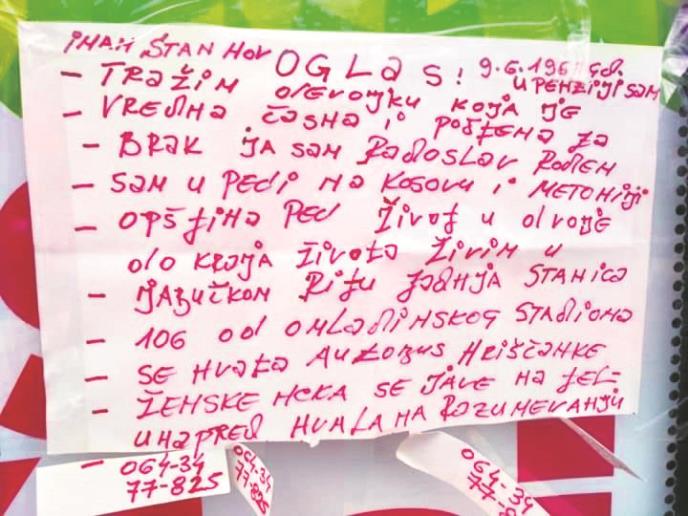 IMAM STAN HOV OGLAS! 9.6. god.
- TRAŽIM DEVOJKU KOJA JE U PENZIJI SAM
- VREDNA ČASNA I POŠTENA ZA
- BRAK JA SAM RADOSLAV ROĐEN
- SAM U PEĆI NA KOSOVU I METOHIJI
- OPŠTINA PEĆ ŽIVOT U DVOJE
DO KRAJA ŽIVOTA ŽIVIM U
- JABUČKOM RITU ZADNJA STANICA
- 106 OD OMLADINSKOG STADIONA
- SE HVATA AUTOBUS HRIŠĆANKE
- ŽENSKE NEKA SE JAVE NA TEL-
UNAPRED HVALA NA RAZUMEVANJU
- 064-34
77-825
064-34
77-825
064-34